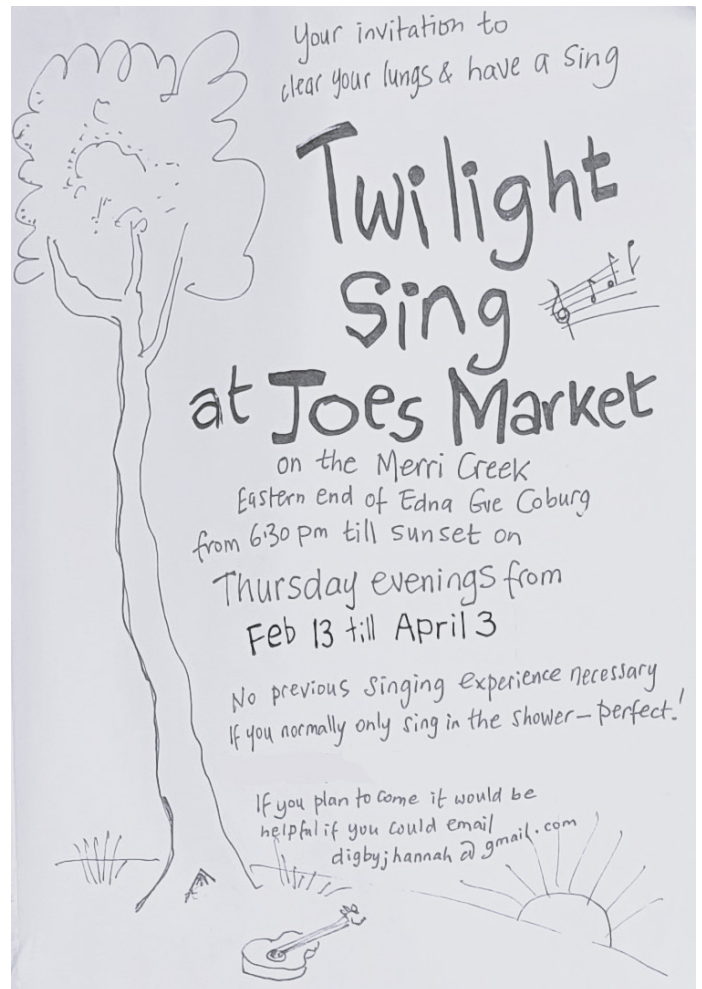 Your invitation to
clear your lungs & have a sing
Twilight
Sing
at Joes Market
on the Merri Creek
Eastern end of Edna Gve Coburg
from 6.30 pm till sunset on
Thursday evenings from
Feb 13 till April 3
No previous singing experience necessary
If you normally only sing in the shower – perfect!
If you plan to come it would be
helpful if you could email
digbyjhannah@gmail.com